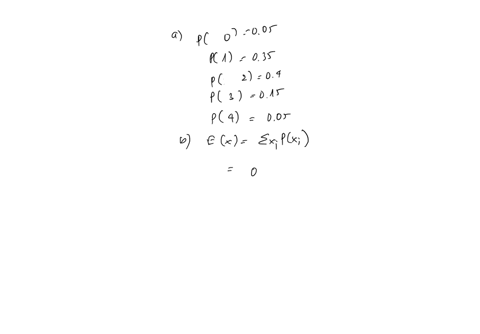 a) P( 0) = 0.05
P(1) = 0.35
P( 2) = 0.4
P( 3) = 0.15
P(4) = 0.05
b) E(x) = Σx_i P(x_i)
= 0